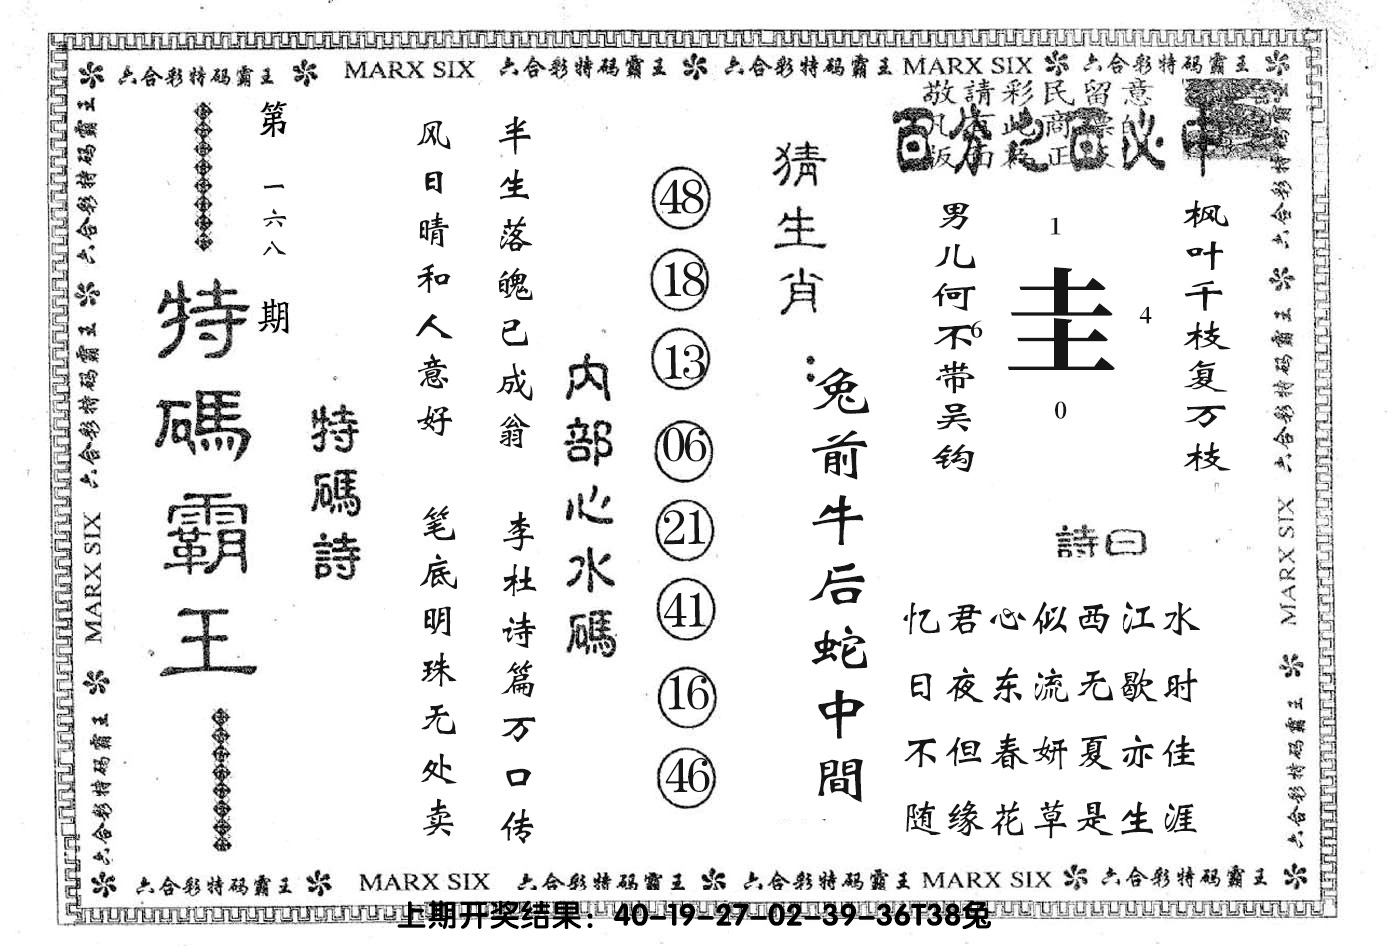 六合彩特码霸王 MARX SIX 六合彩特码霸王 六合彩特码霸王 MARX SIX 六合彩特码霸王
敬請彩民留意
百分之百必中
枫叶千枝复万枝
1
圭
4
6
0
男儿何不带吴钩
詩曰
忆君心似西江水
日夜东流无歇时
不但春妍夏亦佳
随缘花草是生涯
猜生肖：
兔前牛后蛇中間
48
18
13
06
21
41
16
46
内部心水碼
半生落魄已成翁 李杜诗篇万口传
风日晴和人意好 笔底明珠无处卖
特碼詩
第一六八期
特碼霸王
六合彩特码霸王 六合彩特码霸王 MARX SIX 六合彩特码霸王
六合彩特码霸王 六合彩特码霸王 MARX SIX 六合彩特码霸王
六合彩特码霸王 MARX SIX 六合彩特码霸王 六合彩特码霸王 MARX SIX 六合彩特码霸王
上期开奖结果：40-19-27-02-39-36T38兔